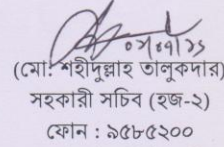 ০৭/০৭/২১
(মো: শহীদুল্লাহ তালুকদার)
সহকারী সচিব (হজ-২)
ফোন : ৯৫৮৫২০০